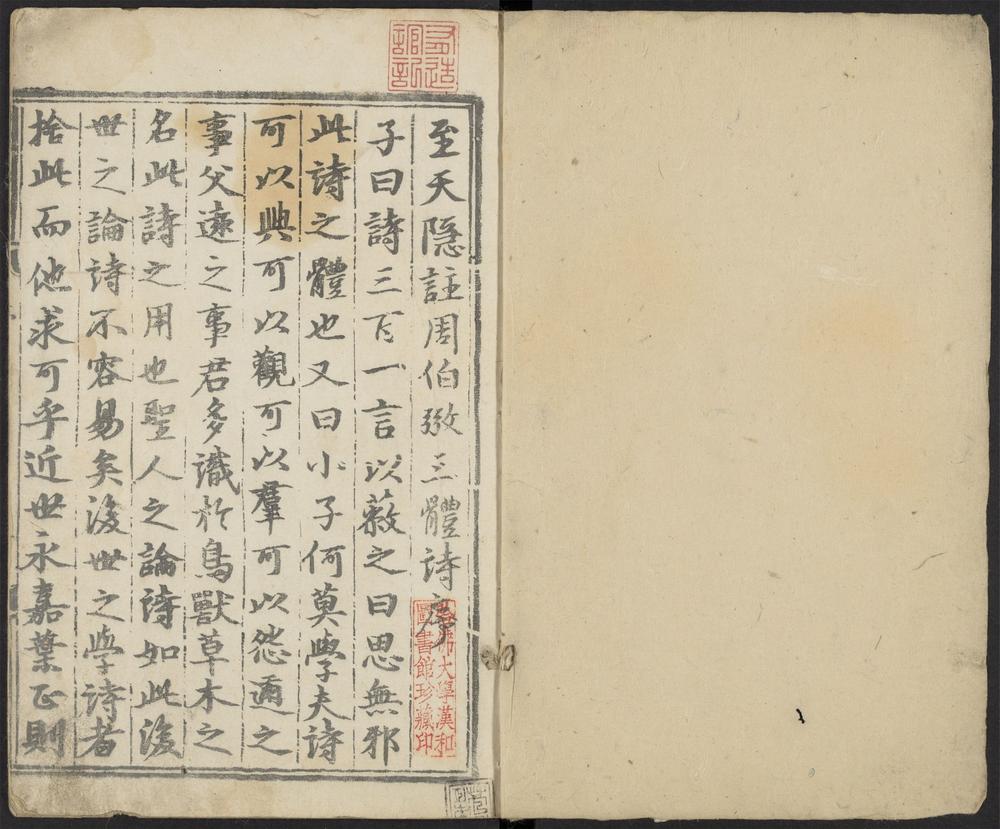 至天隱註周伯弜三體詩序
子曰詩三百一言以蔽之曰思無邪
此詩之體也又曰小子何莫學夫詩
可以興可以觀可以羣可以怨邇之
事父遠之事君多識於鳥獸草木之
名此詩之用也聖人之論詩如此後
世之論詩不容易矣後世之學詩者
捨此而他求可乎近世永嘉葉正則
哈佛大學漢和
圖書館珍藏印